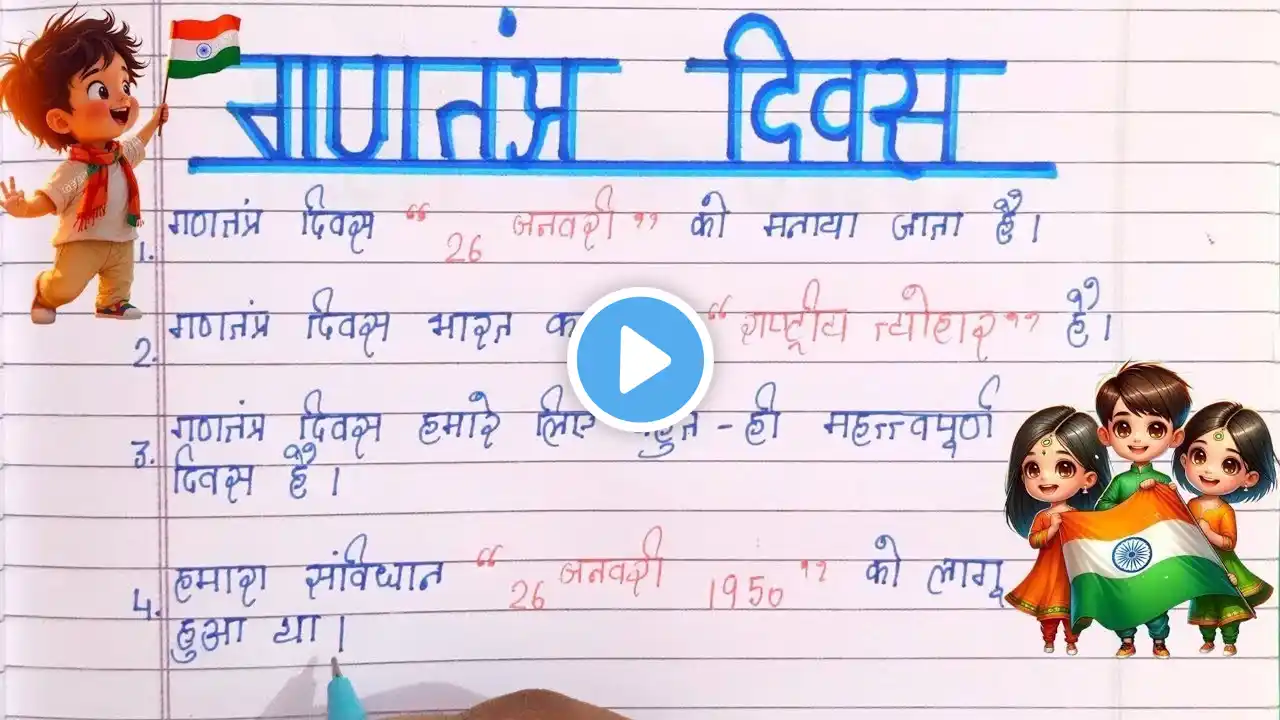 गणतंत्र दिवस
1. गणतंत्र दिवस “ 26 जनवरी ” को मनाया जाता है।
2. गणतंत्र दिवस भारत का “ राष्ट्रीय त्योहार ” है।
3. गणतंत्र दिवस हमारे लिए बहुत - ही महत्त्वपूर्ण
दिवस है।
4. हमारा संविधान “ 26 जनवरी 1950 ” को लागू
हुआ था।